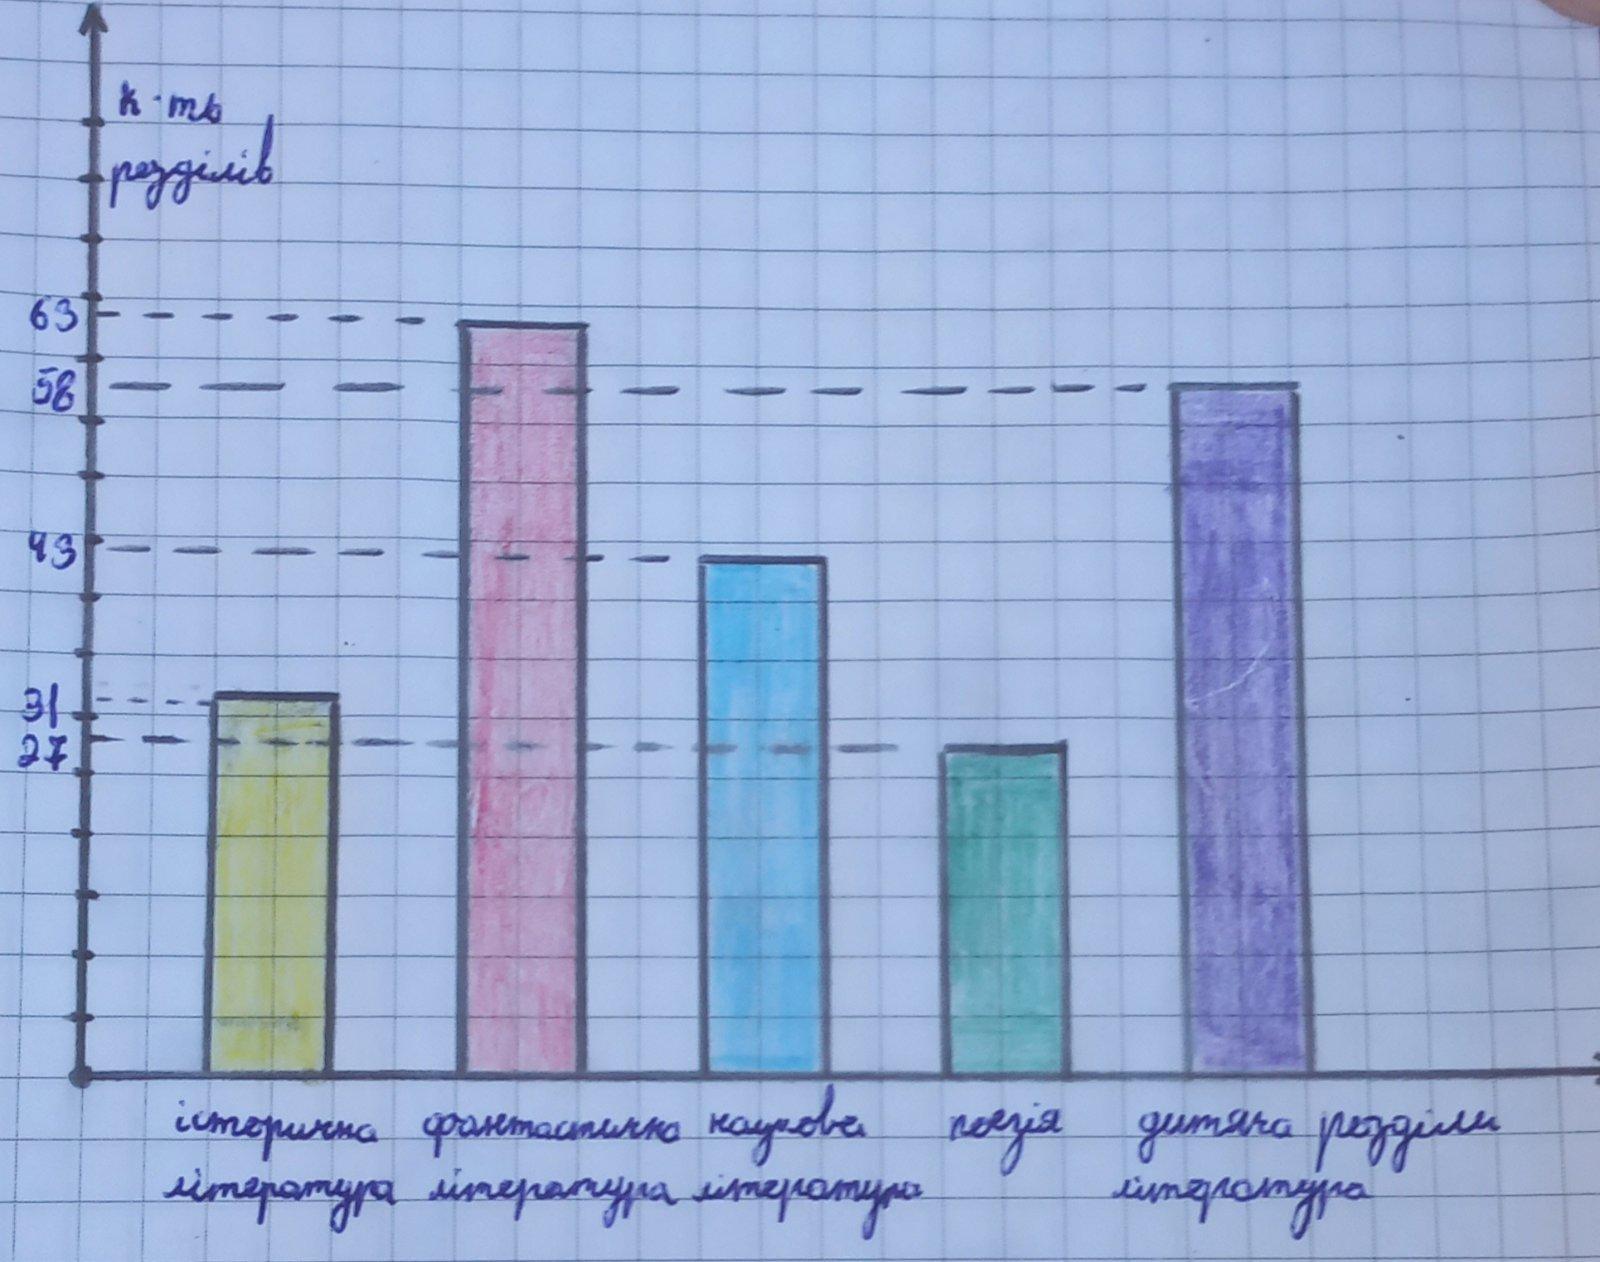 к-ть
розділів
63
58
43
31
27
історична фантастична наукова поезія дитяча розділи
література література література література